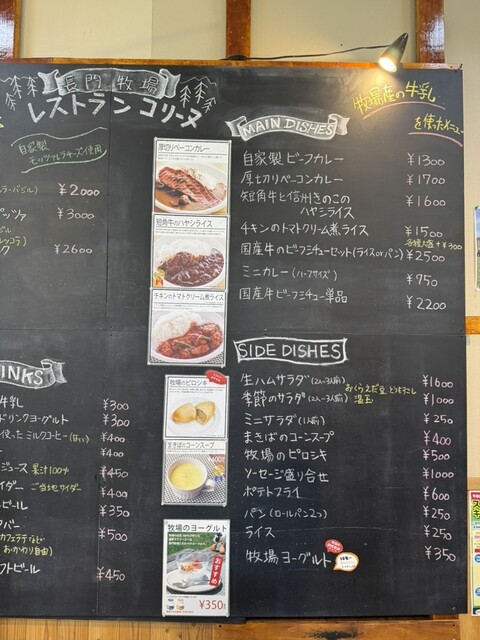 長門牧場
レストランコリーヌ
自家製
モッツァレラチーズ使用
¥2000
¥3000
¥2600
INKS
牛乳 ¥300
ドリンクヨーグルト ¥300
使った ミルクコーヒー ¥400
ジュース 果汁100% ¥450
イダー ご当地サイダー ¥400
ビール ¥350
クバー ¥500
おかわり自由)
フトビール ¥450
厚切りベーコンカレー
短角牛のハヤシライス
チキンのトマトクリーム煮ライス
牧場のピロシキ
まきばのコーンスープ
牧場のヨーグルト
おすすめ
¥350
牧場産の牛乳
を使ったメニュー
MAIN DISHES
自家製 ビーフカレー ¥1300
厚切りベーコンカレー ¥1700
短角牛と信州きのこの
ハヤシライス ¥1600
チキンのトマトクリーム煮ライス ¥1500
各種大盛+¥300
国産牛のビーフシチューセット(ライスorパン) ¥2500
ミニカレー(ハーフサイズ) ¥750
国産牛ビーフシチュー単品 ¥2200
SIDE DISHES
生ハムサラダ(2人~3人前) ¥1600
季節のサラダ(2人~3人前) おくらえだ豆とうもろこし 温玉 ¥1000
ミニサラダ(1人前) ¥250
まきばのコーンスープ ¥400
牧場のピロシキ ¥500
ソーセージ盛り合せ ¥1000
ポテトフライ ¥600
パン(ロールパン2つ) ¥250
ライス ¥250
牧場ヨーグルト ¥350